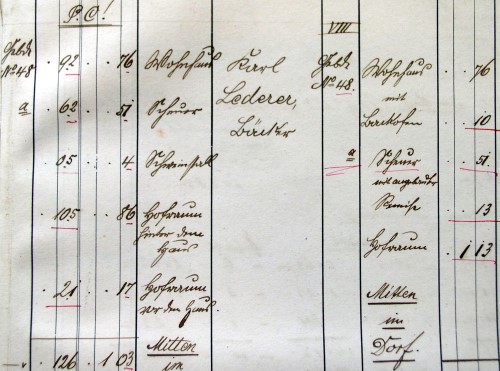 P. C!
Gebde
No 48.
92 76 Wohnhaus
a 62 51 Scheuer
05 4 Schweinstall
105 86 Hofraum
hinter dem
Haus
21 17 Hofraum
vor dem Haus.
126 1 03 Mitten
im
Karl
Lederer,
Bäcker
VIII
Gebde
No 48.
Wohnhaus 76
mit
Backofen 10
a Scheuer 51
mit angebauter
Remise 13
Hofraum 1 13
Mitten
im
Dorf.